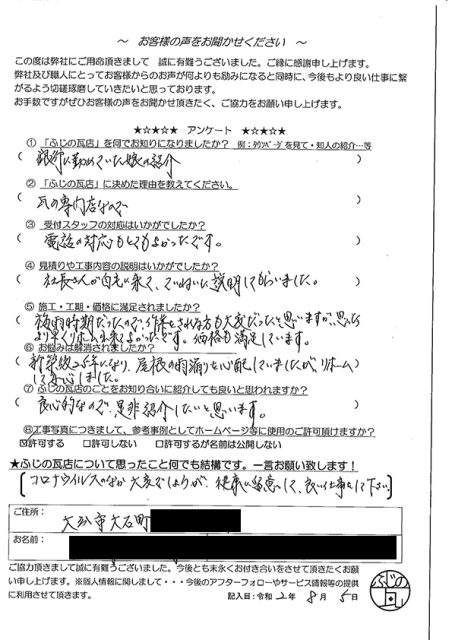 ～ お客様の声をお聞かせください ～
この度は弊社にご用命頂きまして 誠に有難うございました。ご縁に感謝申し上げます。
弊社及び職人にとってお客様からのお声が何よりも励みになると同時に、今後もより良い仕事に繋
がるよう切磋琢磨していきたいと思っております。
お手数ですがぜひお客様の声をお聞かせ頂きたく、ご協力をお願い申し上げます。
★☆★☆★ アンケート ★☆★☆★
①「ふじの瓦店」を何でお知りになりましたか？ 例：タウンページを見て・知人の紹介…等
(銀行に勤めていた娘の紹介)
②「ふじの瓦店」に決めた理由を教えてください。
(瓦の専門店なので)
③ 受付スタッフの対応はいかがでしたか？
(電話の対応もとてもよかったです。)
④ 見積りや工事内容の説明はいかがでしたか？
(社長さんが自宅に来て、ていねいに説明してもらいました。)
⑤ 施工・工期・価格に満足されましたか？
(梅雨時期だったので、作業をされる方も大変だったと思いますが、思った
より早くリホーム出来てよかったです。価格も満足しています。)
⑥ お悩みは解消されましたか？
(新築後25年になり、屋根の雨漏りを心配していましたが、リホーム
して安心しました。)
⑦ ふじの瓦店のことをお知り合いに紹介しても良いと思われますか？
(良心的なので、是非紹介したいと思います。)
⑧工事写真につきまして、参考事例としてホームページ等に使用のご許可頂けますか？
☑許可する □許可しない □許可するが名前は公開しない
★ふじの瓦店について思ったこと何でも結構です。一言お願い致します！
[コロナウイルスのなか大変でしょうが、健康に留意して、良い仕事をして下さい。]
ご住所：
大分市大石町
お名前：
ご協力頂きまして誠に有難うございました。今後とも末永くお付き合いをさせて頂きたくお願
い申し上げます。※個人情報に関しまして・・・今後のアフターフォローやサービス情報等の提供
に利用させて頂きます。
記入日：令和 2年 8月 5日
ふじの